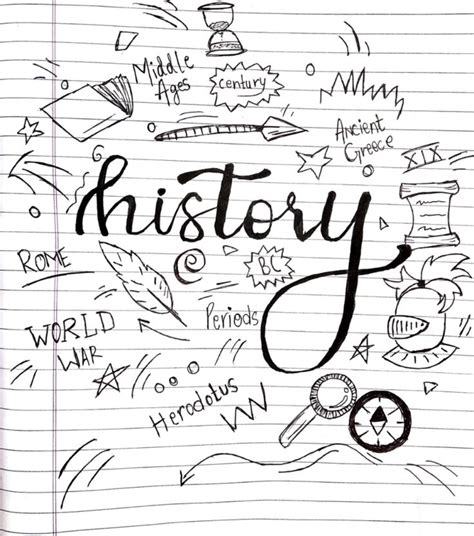 Middle
Ages
century
Ancient
Greece
XIX
history
ROME
BC
Periods
WORLD
WAR
Herodotus